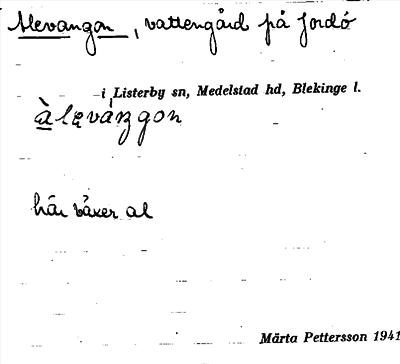 Alevangon, vattengård på Jordö
i Listerby sn, Medelstad hd, Blekinge l.
här växer al
Märta Pettersson 1941